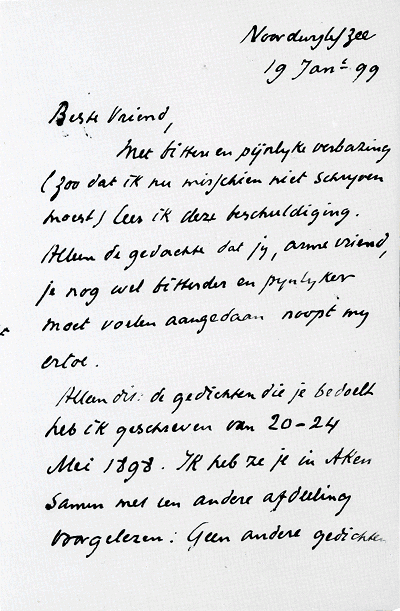 Noordwijk/zee
19 Jan: 99
Beste Vriend,
Met bittere en pijnlyke verbazing
(zoo dat ik nu misschien niet schryven
moest) lees ik deze beschuldiging.
Alleen de gedachte dat jy, arme vriend,
je nog wel bitterder en pynlyker
moet voelen aangedaan noopt my
ertoe.
Alleen dit: de gedichten die je bedoelt
heb ik geschreven van 20-24
Mei 1898. Ik heb ze je in Aken
samen met een andere afdeeling
voorgelezen: Geen andere gedichten